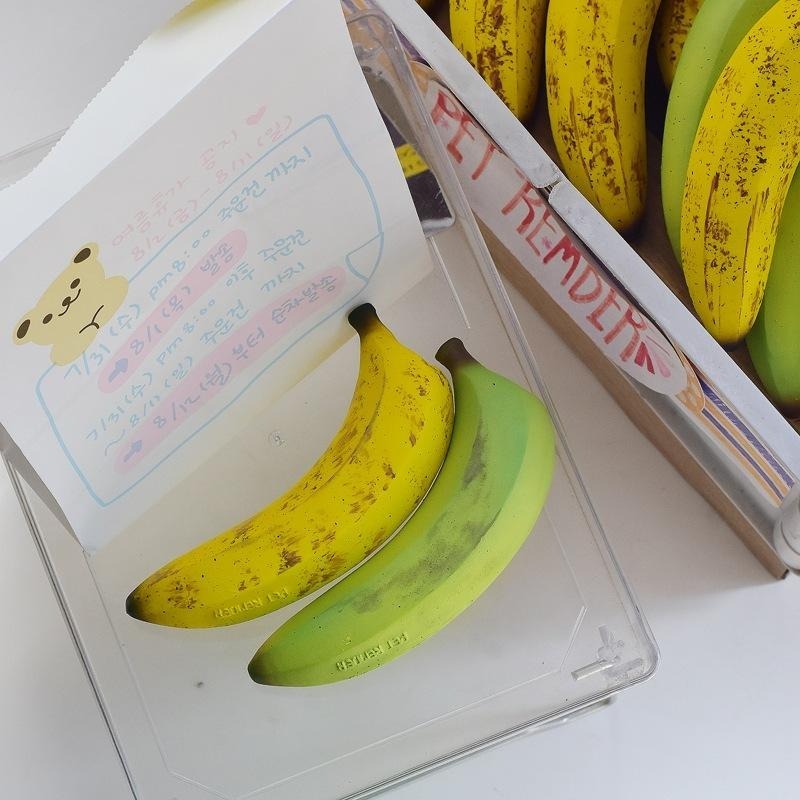 여름휴가 공지 ♥
8/2 (금) - 8/11 (일)
7/31 (수) pm 8:00 주문건 까지
➡ 8/1 (목) 발송
7/31 (수) pm 8:00 이후 주문건
~ 8/11 (일) 주문건 까지
➡ 8/12 (월) 부터 순차발송
PET REMDER
PET REMDER
PET REMDER